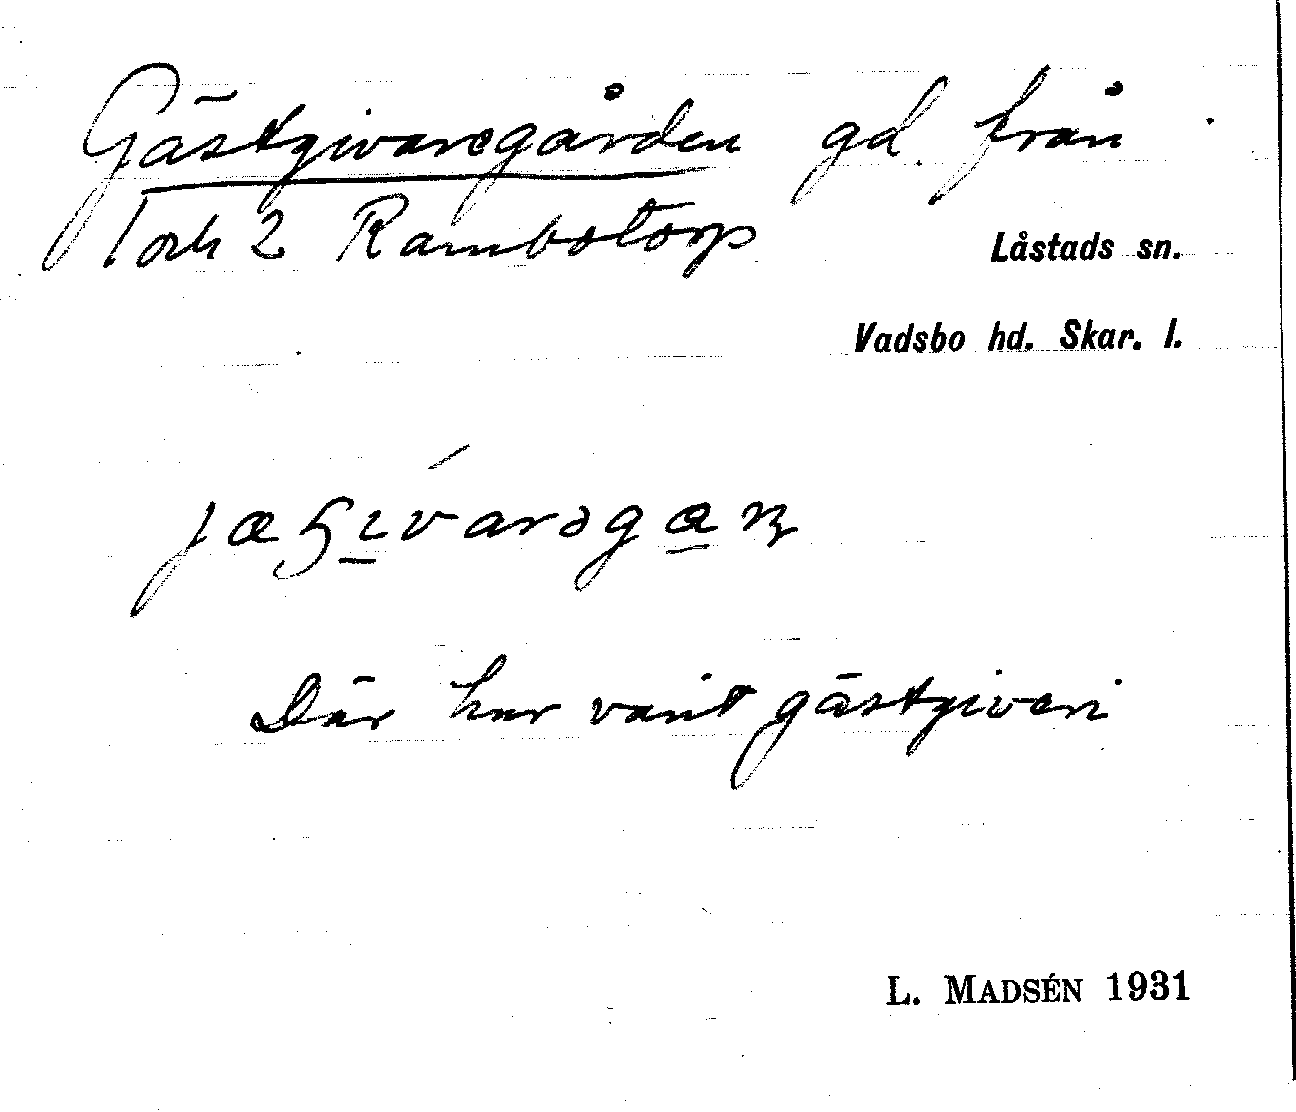 Gästgivaregården gd. från
1 och 2 Rambotorp
Låstads sn.
Vadsbo hd. Skar. l.
Där har varit gästgiveri
L. MADSÉN 1931